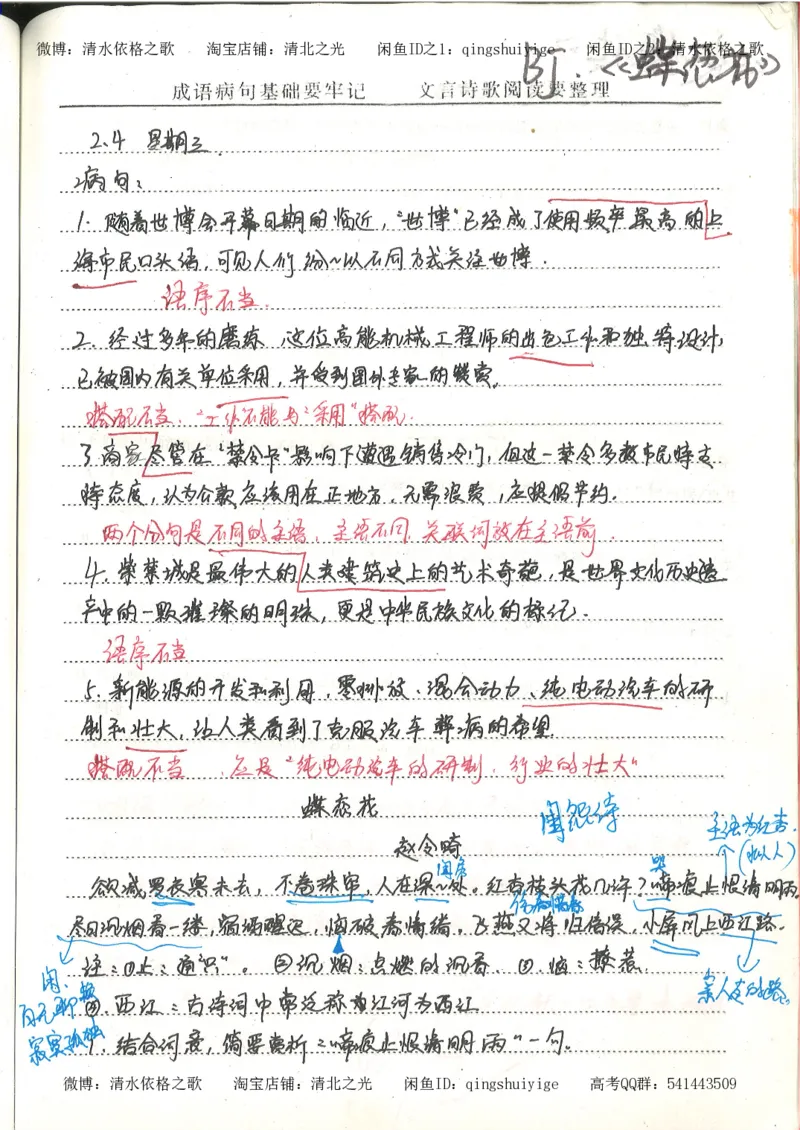 微博：清水依格之歌 淘宝店铺：清北之光 闲鱼ID之1：qingshuiyige 闲鱼ID之2：清水依格之歌
BJ.《蝶恋花》
成语病句基础要牢记 文言诗歌阅读要整理
2.4 星期三
病句：
1. 随着世博会开幕日期的临近，“世博”已经成了使用频率最高的上
海市民口头语，可见人们纷~以不同方式关注世博.
语序不当.
2. 经过多年的磨练 这位高能机械工程师的出色工作和独特设计，
已被国内有关单位采用，并受到国外专家的赞赏.
搭配不当：“工作不能与“采用”搭配.
3. 商家尽管在“禁令卡”影响下遭遇销售冷门，但这一禁令多数市民持支
持态度，认为公款应该用在正地方，无需浪费，应提倡节约.
两个分句是不同的主语，主语不同，关联词放在主语前.
4. 紫禁城是最伟大的人类建筑史上的艺术奇葩，是世界文化历史遗
产中的一颗璀璨的明珠，更是中华民族文化的标记.
语序不当
5. 新能源的开发和利用，零排放、混合动力、纯电动汽车的研
制和壮大，让人类看到了克服汽车弊病的希望.
搭配不当 .应是“纯电动汽车的研制，行业的壮大”
蝶恋花
闺怨诗
主语为红杏.
赵令畤
(拟人)
闺房
哭
欲减罗衣寒未去，不卷珠帘，人在深~处。红杏枝头花几许？啼痕止恨清明雨。
尽日沉烟香一缕，宿酒醒迟，恼破春情绪。飞燕又将归信误，小屏风上西江路.
注：①止：通“识”。 ②沉烟：点燃的沉香. ③.恼：撩惹.
闲.
百无聊赖
寂寞孤独
亲人去的路.
④.西江：古诗词中常泛称为江河为西江
1. 结合词意，简要赏析：啼痕止恨清明雨“一句.
微博：清水依格之歌 淘宝店铺：清北之光 闲鱼ID：qingshuiyige 高考QQ群：541443509